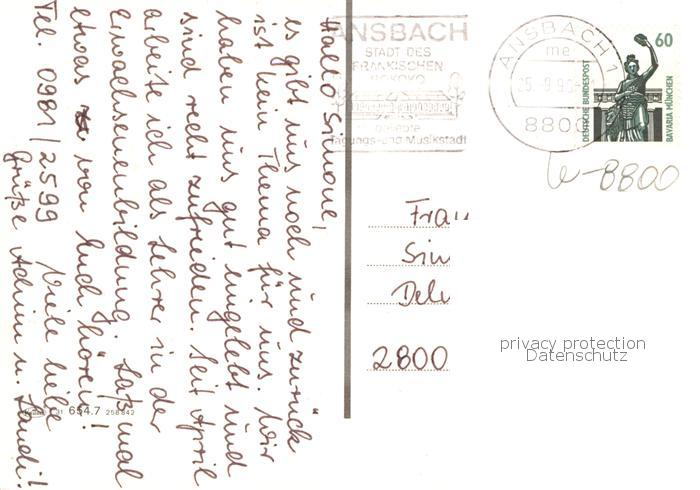 Hallo Simone,
es gibt uns noch und zurück
ist kein Thema für uns. Wir
haben uns gut eingelebt und
sind recht zufrieden. Seit April
arbeite ich als Lehrer in der
Erwachsenenbildung. Laß mal
etwas von Euch hören!
Tel. 0981/2599 Viele liebe
Grüße Achim u.
654.7 258 842
ANSBACH
STADT DES
FRÄNKISCHEN
ROKOKO
beliebte
Tagungs- und Musikstadt
ANSBACH 1
me
8800
60
DEUTSCHE BUNDESPOST
BAVARIA MÜNCHEN
W-8800
Frau
Sim
Delu
2800
privacy protection
Datenschutz